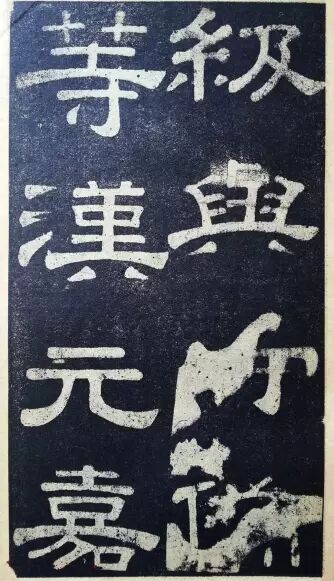 級與
等漢元嘉